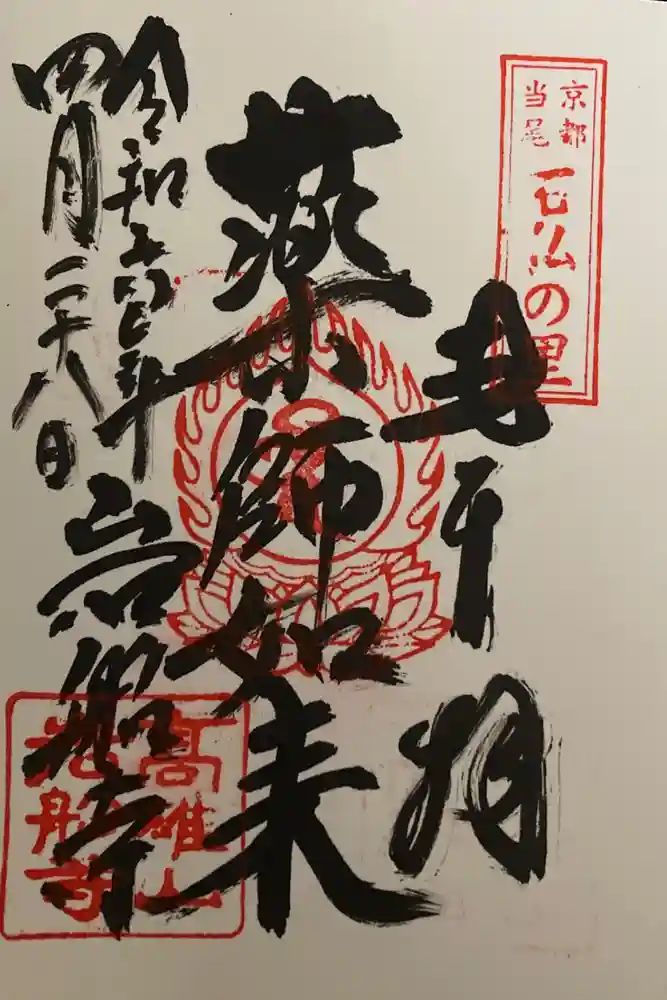 京都
当尾
石仏の里
奉拝
薬師如来
令和五年
四月二十八日
岩船寺
高雄山
岩船寺